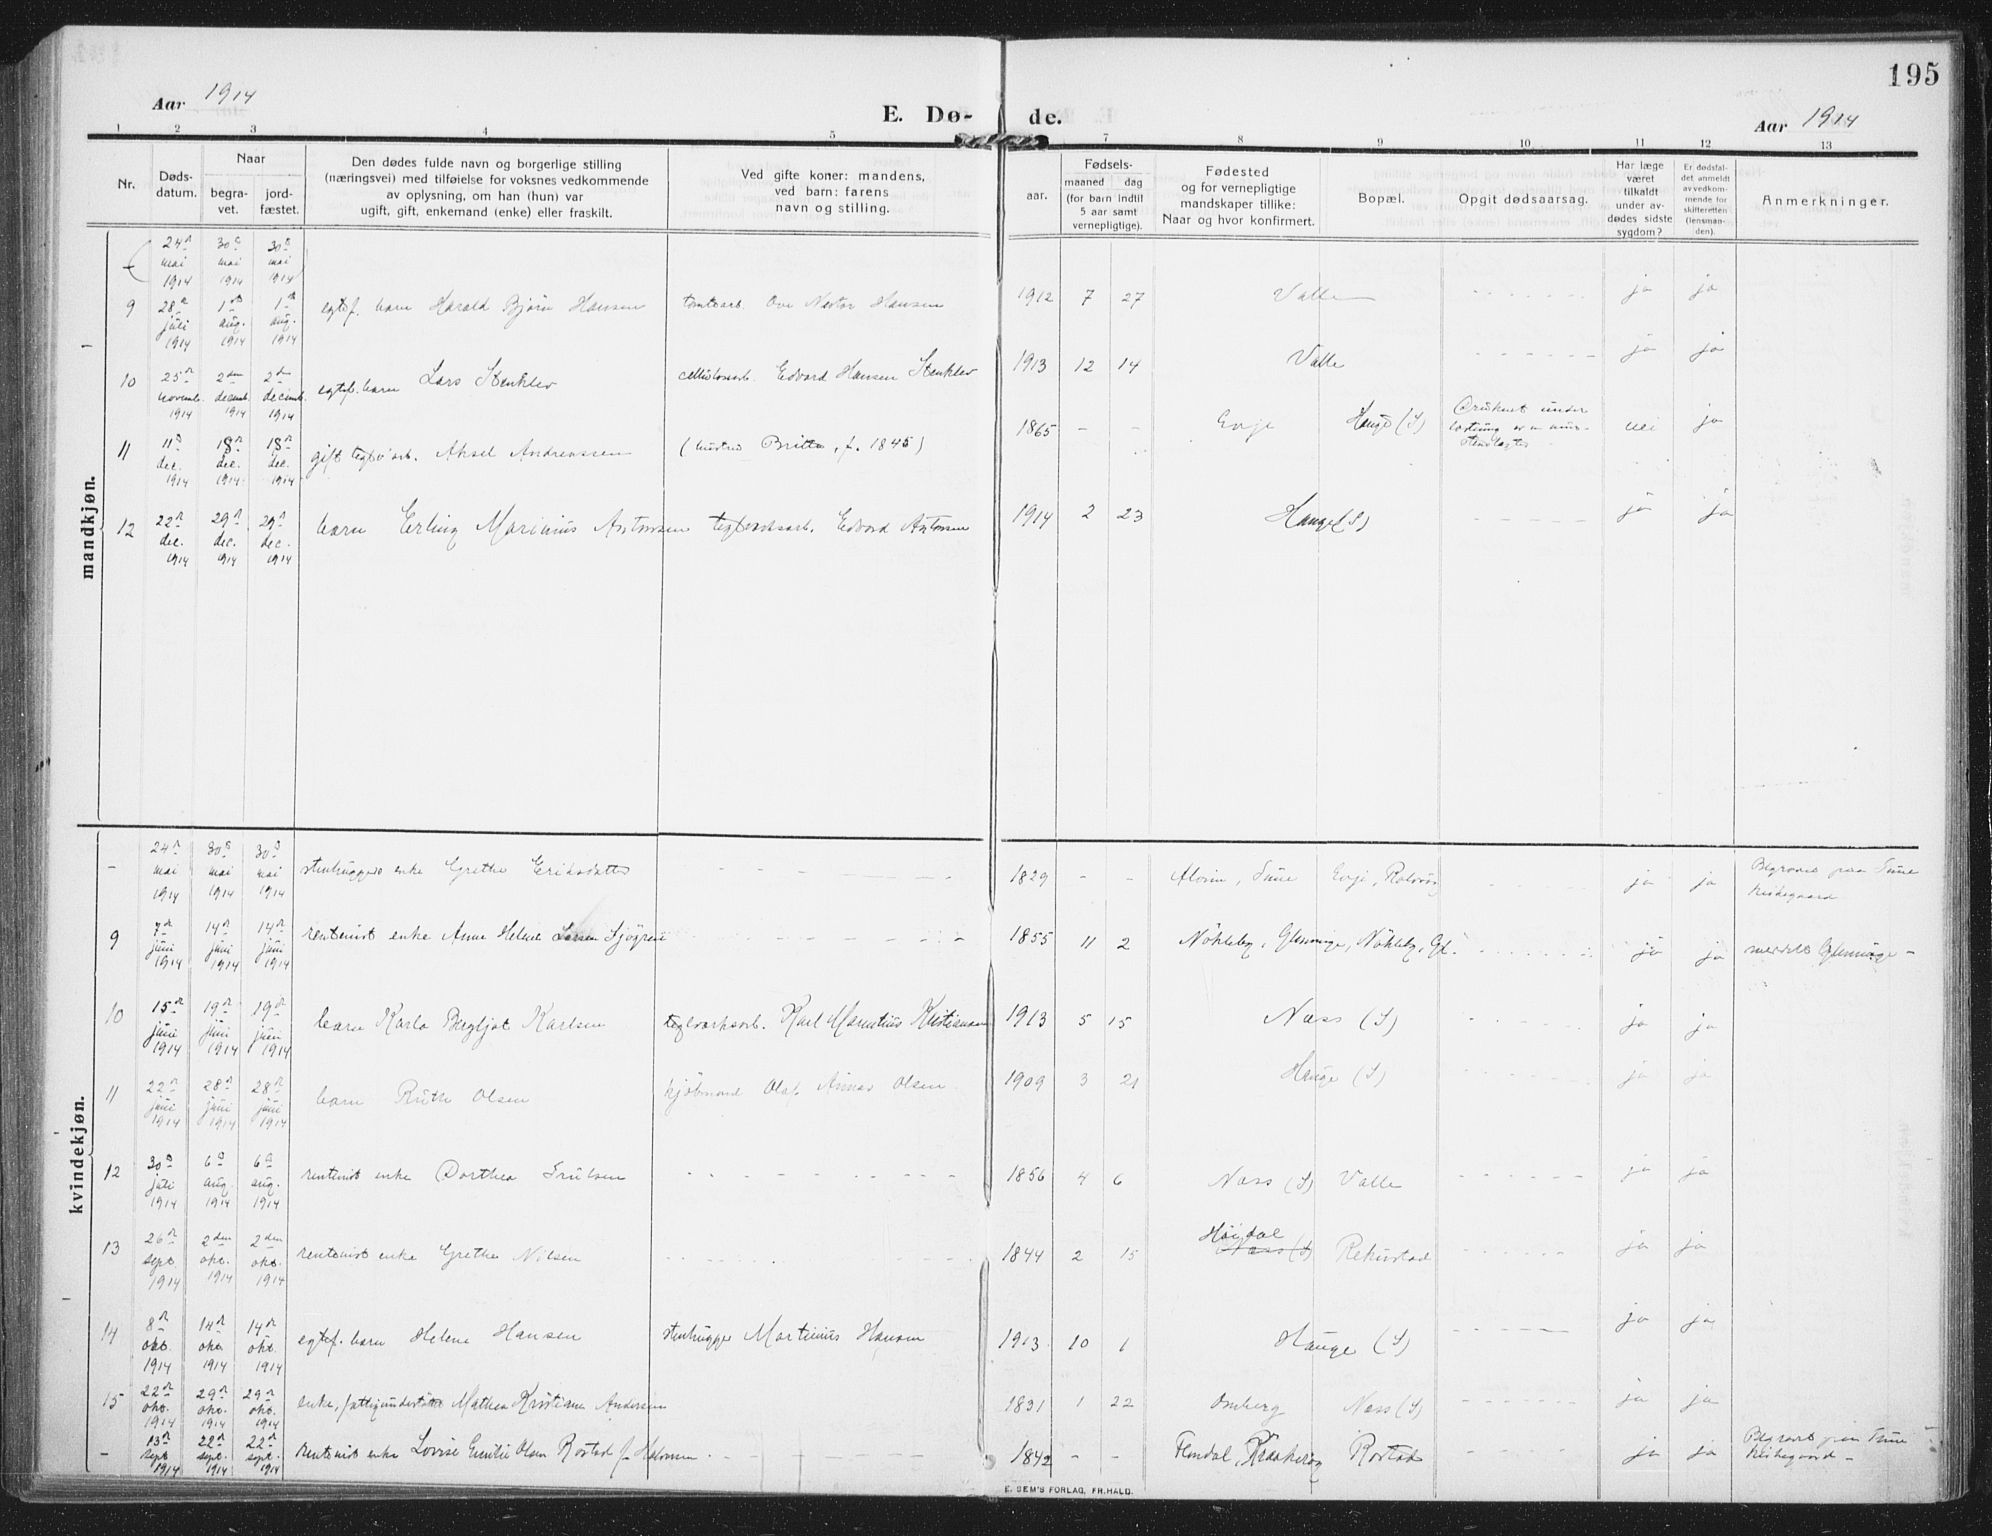 195
Aar 1914
E. Dø-
de.
Aar 1914
1 2 3 4 5 7 8 9 10 11 12 13
Nr.
Døds-
datum.
Naar
begra-
vet.
jord-
fæstet.
Den dødes fulde navn og borgerlige stilling
(næringsvei) med tilføielse for voksnes vedkommende
av oplysning, om han (hun) var
ugift, gift, enkemand (enke) eller fraskilt.
Ved gifte koner: mandens,
ved barn: farens
navn og stilling.
aar.
Fødsels-
maaned dag
(for barn indtil
5 aar samt
vernepligtige).
Fødested
og for vernepligtige
mandskaper tillike:
Naar og hvor konfirmert.
Bopæl.
Opgit dødsaarsag.
Har læge
været
tilkaldt
under av-
dødes sidste
sygdom?
Er dødsfal-
det anmeldt
av vedkom-
mende for
skifteretten
(lensman-
den).
Anmerkninger.
mandkjøn.
24 mai 1914 30 mai 1914 30 mai 1914
9 28 juli 1914 1 aug. 1914 1 aug. 1914 egtef. barn Harald Bjørn Hansen tomtearb. Ove Nestor Hansen 1912 7 27 Valle ja ja
10 25 novemb. 1914 2den decemb. 1914 2den decemb. 1914 egtef. barn Lars Stenklev cellulosearb. Edvard Hansen Stenklev 1913 12 14 Valle ja ja
11 11 dec. 1914 18 dec. 1914 18 dec. 1914 gift teglv.arb. Aksel Andreassen (hustru Britta, f. 1845) 1865 - - Evje Hauge (S) Druknet under nei ja
12 22 dec. 1914 29 dec. 1914 29 dec. 1914 barn Erling Marinius Antonsen teglverksarb. Edvard Antonsen 1914 2 23 Hauge (S) ja ja
kvindekjøn.
- 24 mai 1914 30 mai 1914 30 mai 1914 stenhuggers enke Grethe Eriksdatter 1829 - - Alvim, Tune Evje, Rolvsøy ja ja Begravet paa Tune kirkegaard
9 7 juni 1914 14 juni 1914 14 juni 1914 rentenist enke Anne Helene Larsen Sjøgren 1855 11 2 Nökleby, Glemminge, Nökleby, Gl. ja ja meddelt Glemminge -
10 15 juni 1914 19 juni 1914 19 juni 1914 barn Karla Bergljot Karlsen teglverksarb. Karl Mauritius Kristiansen 1913 5 15 Næss (S) ja ja
11 22 juni 1914 28 juni 1914 28 juni 1914 barn Ruth Olsen kjøbmand Olaf Anner Olsen 1909 3 21 Hauge (S) ja ja
12 30 juli 1914 6 aug. 1914 6 aug. 1914 rentenist enke Dorthea Trulsen 1856 4 6 Næss (S) Valle ja ja
13 26 sept. 1914 2den okt. 1914 2den okt. 1914 rentenist enke Grethe Nilsen 1844 2 15 Høidal Næss (S) Rekustad ja ja
14 8 okt. 1914 14 okt. 1914 14 okt. 1914 egtef. barn Helene Hansen stenhugger Martinius Hansen 1913 10 1 Hauge (S) ja ja
15 22 okt. 1914 29 okt. 1914 29 okt. 1914 enke, fattigunderstøttet Mathea Kristiane Andersen 1831 1 22 Omberg Næss (S) ja ja
- 13 sept. 1914 22 sept. 1914 22 sept. 1914 rentenist enke Lovise Emilie Olsen Rostad f. Halvorsen 1842 - - Flendal, Raakerøy Rostad ja ja Begravet paa Tune kirkegaard -
E. SEM'S FORLAG, FR.HALD.